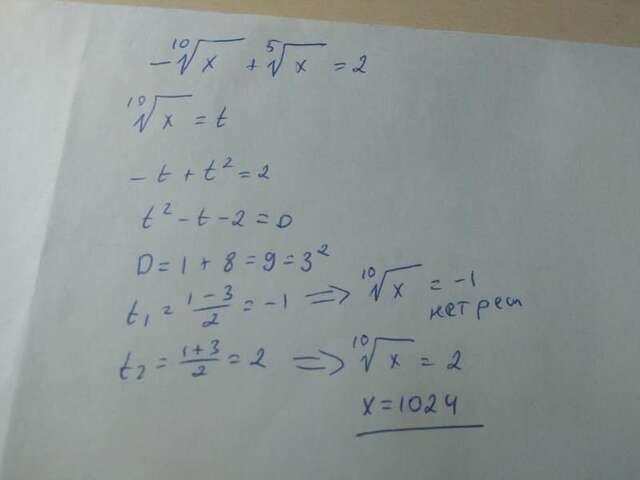 -¹⁰√x + ⁵√x = 2
¹⁰√x = t
-t + t² = 2
t² - t - 2 = 0
D = 1 + 8 = 9 = 3²
t₁ = (1-3)/2 = -1 ⟹ ¹⁰√x = -1
нет реш
t₂ = (1+3)/2 = 2 ⟹ ¹⁰√x = 2
x = 1024